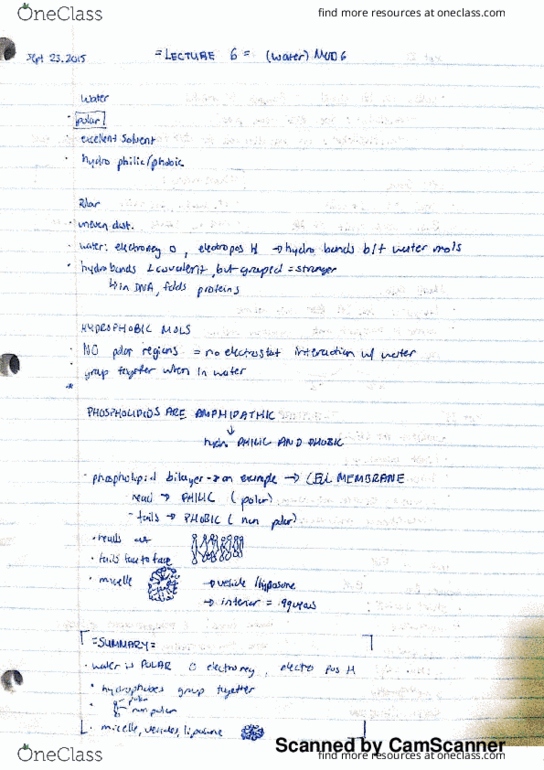 OneClass
find more resources at oneclass.com
find more resources at oneclass.com
Sept 23.2015
= LECTURE 6 = (water) MOD 6
Water
· polar
excellent solvent
· hydro philic/phobic
Polar
· uneven dist.
· water: electroneg O, electropos H → hydro bonds b/t water mols
· hydro bonds < covalent, but grouped = stronger
↳ in DNA, folds proteins
HYDROPHOBIC MOLS
· NO polar regions = no electrostat interaction w/ water
· group together when in water
*
PHOSPHOLIPIDS ARE AMPHIPATHIC
↓
hydro PHILIC AND PHOBIC
· phospholipid bilayer → an example → CELL MEMBRANE
head → PHILIC (polar)
- tails → PHOBIC (non polar)
· heads out
· tails face to face
· micelle → vesicle / liposome
→ interior = aqueous
= SUMMARY =
· water is POLAR O electroneg, electro pos H
· hydrophobes group together
· polar
non polar
· micelle, vesicles, liposome
Scanned by CamScanner
OneClass
find more resources at oneclass.com